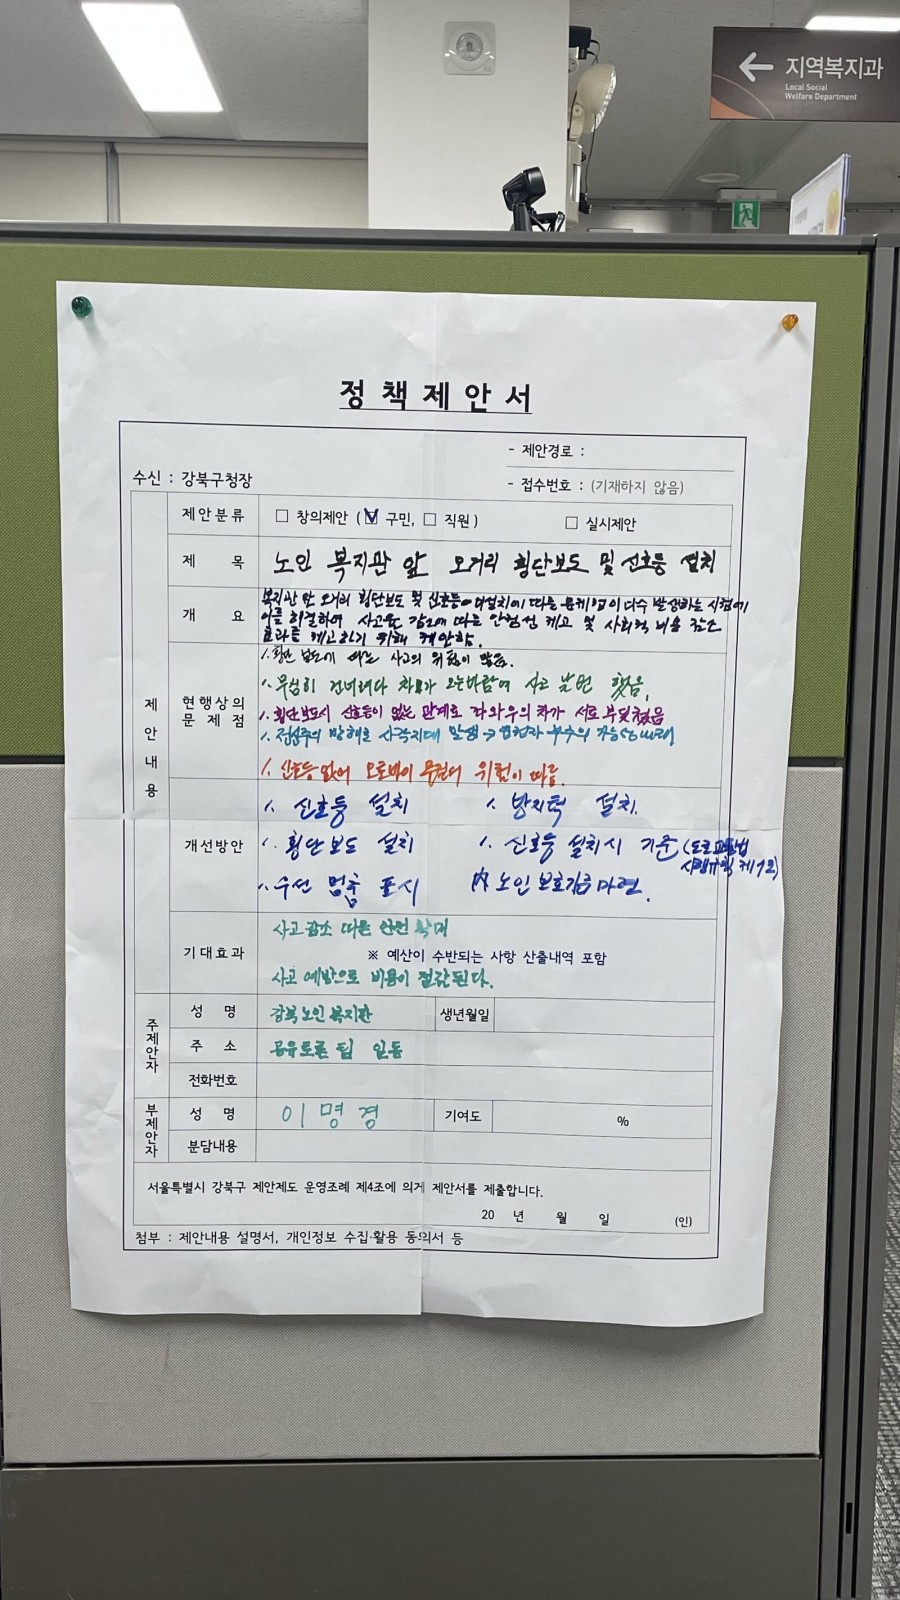 지역복지과
Local Social
Welfare Department
정책제안서
- 제안경로 :
수신 : 강북구청장
- 접수번호 : (기재하지 않음)
제안내용
제안분류
☐ 창의제안 (☑ 구민, ☐ 직원)
☐ 실시제안
제 목
노인 복지관 앞 오거리 횡단보도 및 신호등 설치
개 요
복지관 앞 오거리 횡단보도 및 신호등 미설치에 따른 문제점이 다수 발생하는 시점에
이를 해결하여 사고율 감소에 따른 안전성 제고 및 사회적 비용 감소
효과를 제고하기 위해 제안함.
현행상의
문 제 점
1. 횡단 보도에 따른 사고의 위험이 많음.
1. 무심히 건너려다 차가 오는바람에 사고 날번 했음.
1. 횡단보도시 신호등이 없는 관계로 좌와우의 차가 서로 부딪쳤음
1. 전신주의 방해로 사각지대 발생 →
1. 신호등 없어 오토바이 위험이 따름.
개선방안
1. 신호등 설치
1. 방지턱 설치.
1. 횡단보도 설치
1. 신호등 설치시 기준 (도로교통법
시행규칙 제12)
1. 우선 멈춤 표시
內 노인 보호기준 마련.
기대효과
사고감소 따른 안전 확대
※ 예산이 수반되는 사항 산출내역 포함
사고 예방으로 비용이 절감된다.
주제안자
성 명
강북노인복지관
생년월일
주 소
공유토론 팀 일동
전화번호
부제안자
성 명
이명경
기여도
%
분담내용
서울특별시 강북구 제안제도 운영조례 제4조에 의게 제안서를 제출합니다.
20 년 월 일 (인)
첨부 : 제안내용 설명서, 개인정보 수집·활용 동의서 등